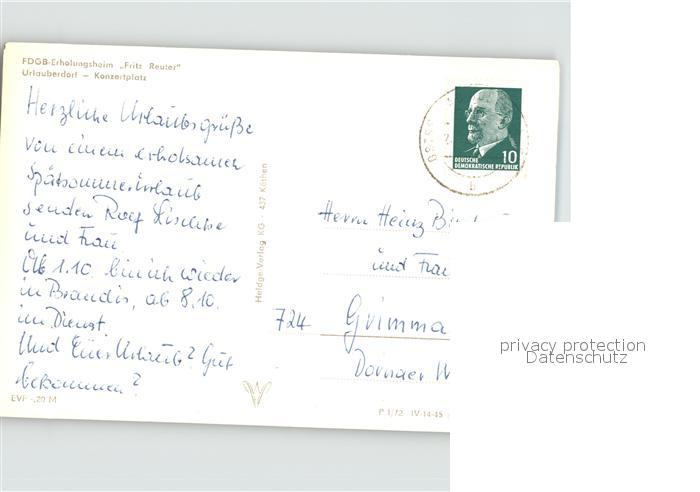 FDGB-Erholungsheim „Fritz Reuter"
Urlauberdorf – Konzertplatz
Herzliche Urlaubsgrüße
von einem erholsamen
Spätsommerurlaub
senden Rolf
und Frau
Ab 1.10. bin ich wieder
in Brandis, ab 8.10.
im Dienst.
Und Euer Urlaub? Gut
bekommen?
EVP -,20 M
Heldge-Verlag KG · 437 Köthen
DEUTSCHE
DEMOKRATISCHE REPUBLIK
10
b
Herrn Heinz
und Frau
724 Grimma
Dornaer W
P 1/72 IV-14-45
privacy protection
Datenschutz